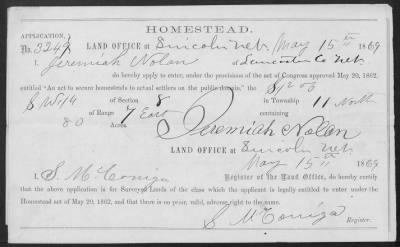 HOMESTEAD.
APPLICATION,
No. 3249
LAND OFFICE at Lincoln Neb. May 15th 1869
I, Jeremiah Nolan of Lancaster Co Neb.
do hereby apply to enter, under the provisions of the act of Congress approved May 20, 1862,
entitled "An act to secure homesteads to actual settlers on the public domain," the S 1/2 of
S W 1/4 of Section 8 in Township 11 North
of Range 7 East
80 Acres.
Jeremiah Nolan
LAND OFFICE at Lincoln Neb.
May 15th 1869
I, S. McConiga Register of the Land Office, do hereby certify
that the above application is for Surveyed Lands of the class which the applicant is legally entitled to enter under the
Homestead act of May 20, 1862, and that there is no prior, valid, adverse right to the same.
S McConiga
Register.